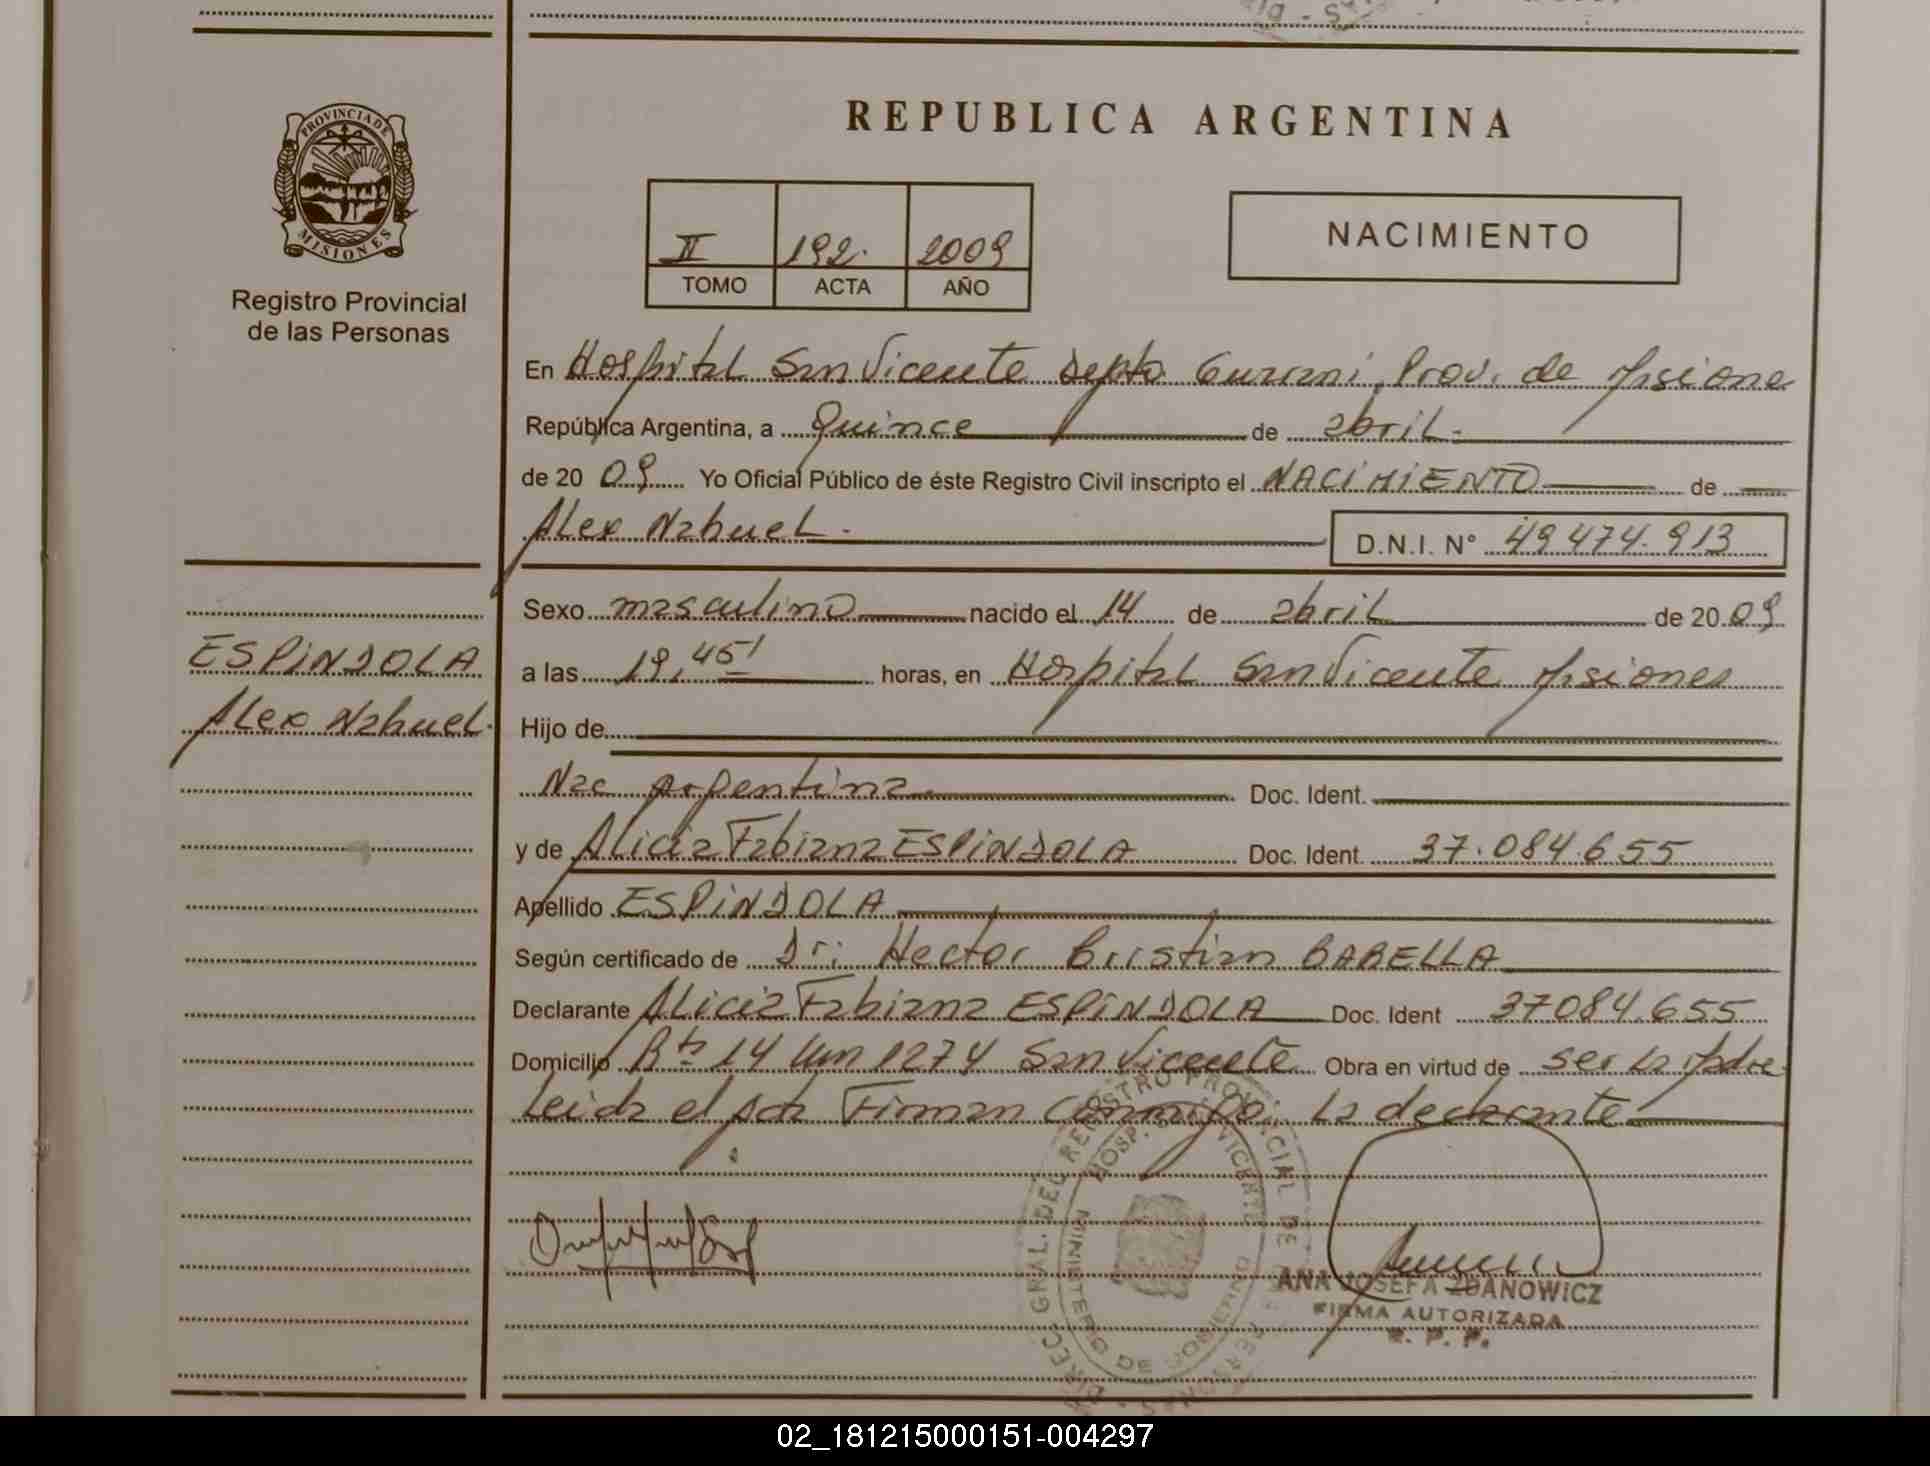 REPUBLICA ARGENTINA
PROVINCIA DE
MISIONES
Registro Provincial
de las Personas
II 192. 2009
TOMO ACTA AÑO
NACIMIENTO
En Hospital San Vicente Depto Guarani, Prov. de Misiones
República Argentina, a Quince de abril.
de 20 09 Yo Oficial Público de éste Registro Civil inscripto el NACIMIENTO de
Alex Nahuel.
D.N.I. N° 49 474.913
Sexo masculino nacido el 14 de abril de 20 09
ESPINDOLA
Alex Nahuel.
a las 19,45' horas, en Hospital San Vicente Misiones
Hijo de
Nac Argentina Doc. Ident.
y de Alicia Fabiana ESPINDOLA Doc. Ident. 37.084.655
Apellido ESPINDOLA
Según certificado de Dr: Hector Cristian BARELLA
Declarante Alicia Fabiana ESPINDOLA Doc. Ident 37084.655
Domicilio Rta 14 Km 1274 San Vicente Obra en virtud de ser la Madre
Leida el Acta Firman Conmigo: la declarante
DIREC. GRAL. DEL REGISTRO PROVINCIAL DE LAS PERSONAS
HOSP. SAN VICENTE
MINISTERIO DE GOBIERNO
ANA JOSEFA ZDANOWICZ
FIRMA AUTORIZADA
R. P. P.
02_181215000151-004297